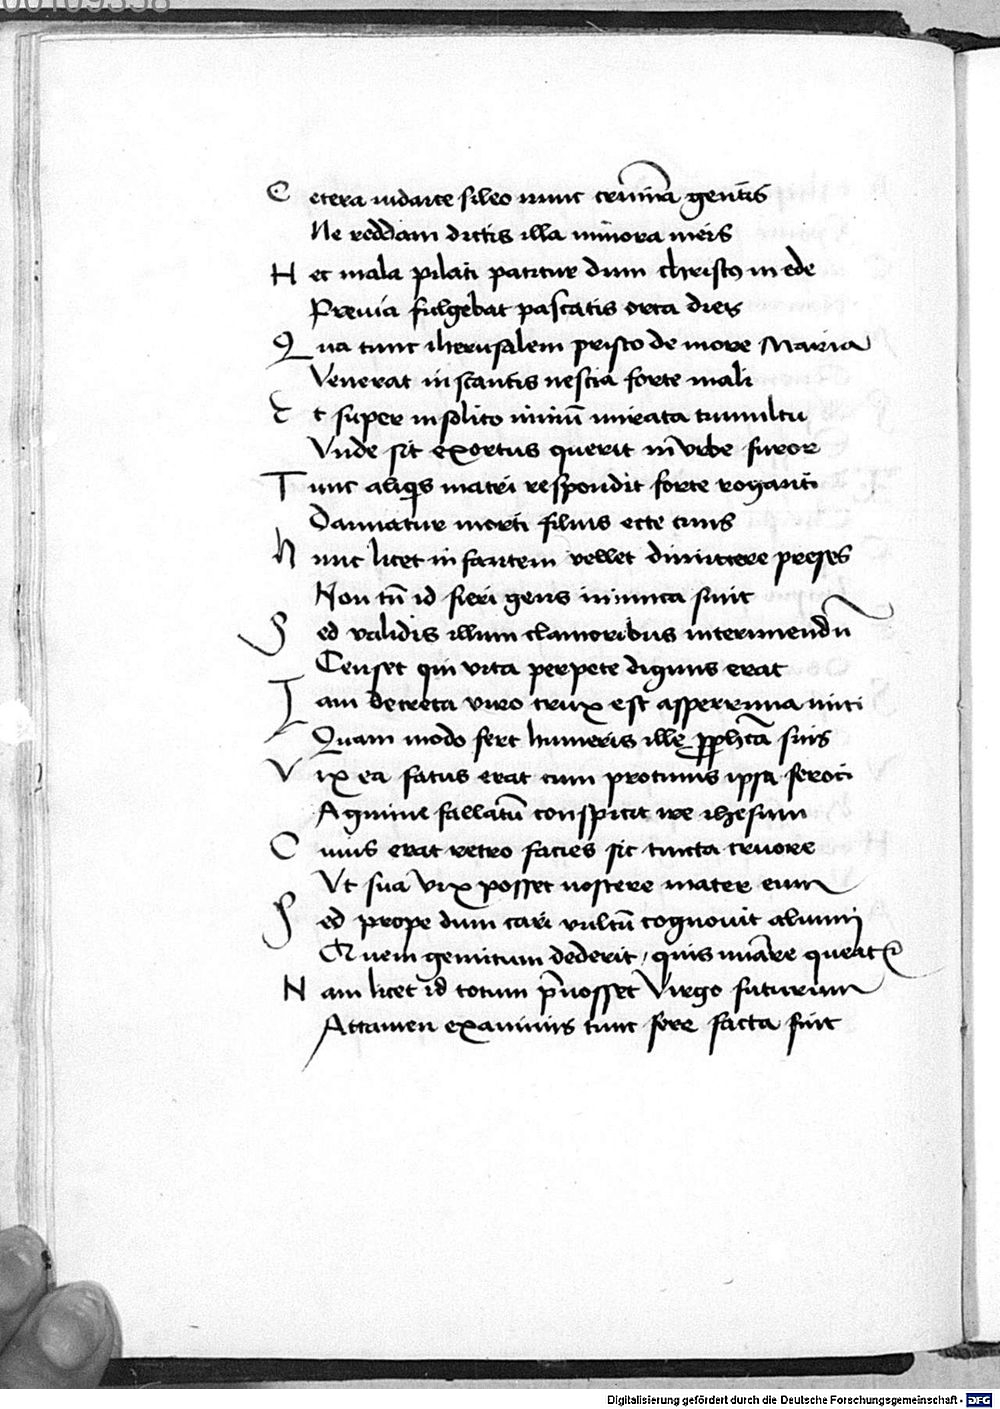 Cetera iudaice sileo nunc crimina gentis
Ne reddam dictis illa minora meis
Hec mala pilati patitur dum christus in ede
Preuia fulgebat pascatis orta dies
Qua tunc iherusalem prisco de more Maria
Venerat instantis nescia forte mali
Et super insolito nimiū mirata tumultu
Vnde sit exortus querit in vrbe furor
Tunc aliqs matri respondit forte roganti
Damnatur morti filius ecce tuus
Hunc licet infantem vellet dimittere preses
Non tn̄ id fieri gens inimica sinit
Sed validis illum clamoribus interimendū
Censet qui vita perpete dignus erat
Iam decreta viro crux est asperrima miti
Quam modo fert humeris ille suis
Vix ea fatus erat cum protinus ipsa feroci
Agmine vallatū conspicit ire ihesum
Cuius erat retro facies sic tincta cruore
Vt sua vix posset noscere mater eum
Sed prope dum cari vultū cognouit alumni
Quem gemitum dederit / quis queat
Nam licet id totum p̄nosset Virgo futurum
Attamen exanimis tunc fere facta fuit
Digitalisierung gefördert durch die Deutsche Forschungsgemeinschaft - DFG